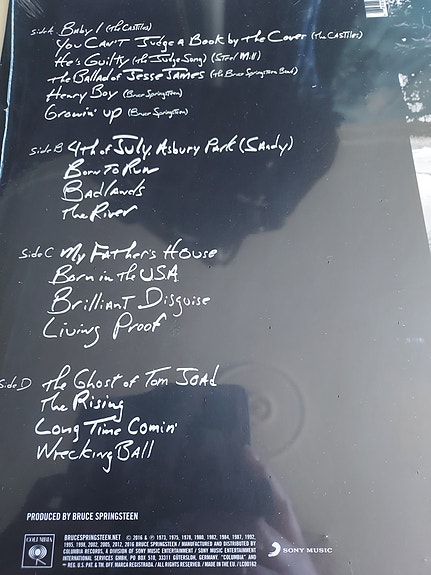 Side A Baby I (The Castiles)
You Can't Judge a Book by the Cover (The Castiles)
He's Guilty (The Judge Song) (Steel Mill)
The Ballad of Jesse James (The Bruce Springsteen Band)
Henry Boy (Bruce Springsteen)
Growin' Up (Bruce Springsteen)
Side B 4th of July, Asbury Park (Sandy)
Born To Run
Badlands
The River
Side C My Father's House
Born in the U.S.A.
Brilliant Disguise
Living Proof
Side D The Ghost of Tom Joad
The Rising
Long Time Comin'
Wrecking Ball
PRODUCED BY BRUCE SPRINGSTEEN
BRUCESPRINGSTEEN.NET © 2016 & ℗ 1973, 1975, 1978, 1980, 1982, 1984, 1987, 1992,
1995, 1998, 2002, 2005, 2012, 2016 BRUCE SPRINGSTEEN / MANUFACTURED AND DISTRIBUTED BY
COLUMBIA RECORDS, A DIVISION OF SONY MUSIC ENTERTAINMENT / SONY MUSIC ENTERTAINMENT
INTERNATIONAL SERVICES GMBH, PO BOX 510, 33311 GÜTERSLOH, GERMANY. "COLUMBIA" AND
REG. U.S. PAT. & TM. OFF. MARCA REGISTRADA. / ALL RIGHTS RESERVED. / MADE IN THE EU. / LC00162
COLUMBIA
SONY MUSIC